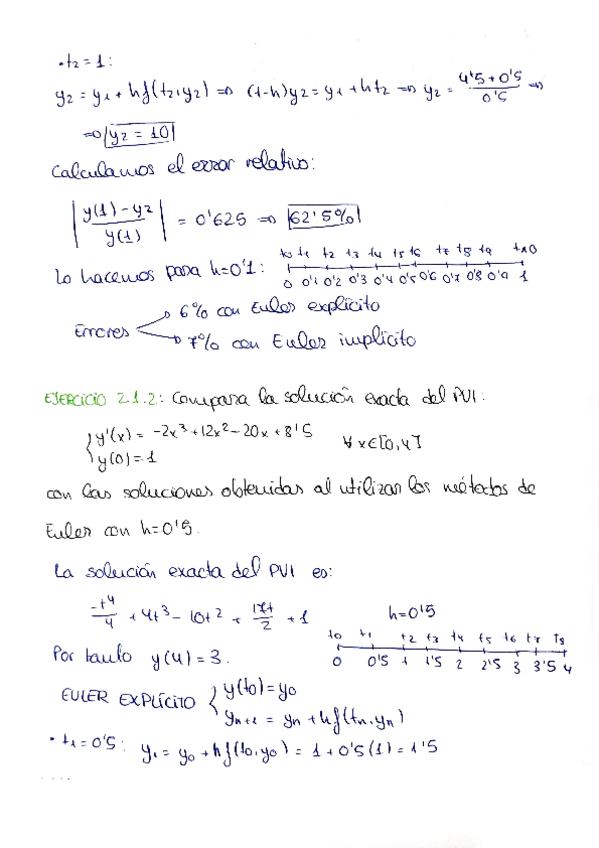 • t2 = 1:
y2 = y1 + hf(t2,y2) => (1-h)y2 = y1 + ht2 => y2 = (4'5+0'5)/0'5 =>
=> y2 = 10
Calculamos el error relativo:
|(y(1) - y2)/y(1)| = 0'625 => 62'5%
Lo hacemos para h=0'1: t0 t1 t2 t3 t4 t5 t6 t7 t8 t9 t10
0 0'1 0'2 0'3 0'4 0'5 0'6 0'7 0'8 0'9 1
Errores
6% con Euler explícito
7% con Euler implícito
EJERCICIO 2.1.2: Compara la solución exacta del PVI:
y'(x) = -2x³ + 12x² - 20x + 8'5
∀ x∈[0,4]
y(0) = 1
con las soluciones obtenidas al utilizar los métodos de
Euler con h=0'5.
La solución exacta del PVI es:
-t⁴/4 + 4t³ - 10t² + 17t/2 + 1
h=0'5
t0 t1 t2 t3 t4 t5 t6 t7 t8
0 0'5 1 1'5 2 2'5 3 3'5 4
Por tanto y(4) = 3.
EULER EXPLÍCITO
y(t0) = y0
yn+1 = yn + hf(tn,yn)
• t1 = 0'5: y1 = y0 + hf(t0,y0) = 1 + 0'5(1) = 1'5
....